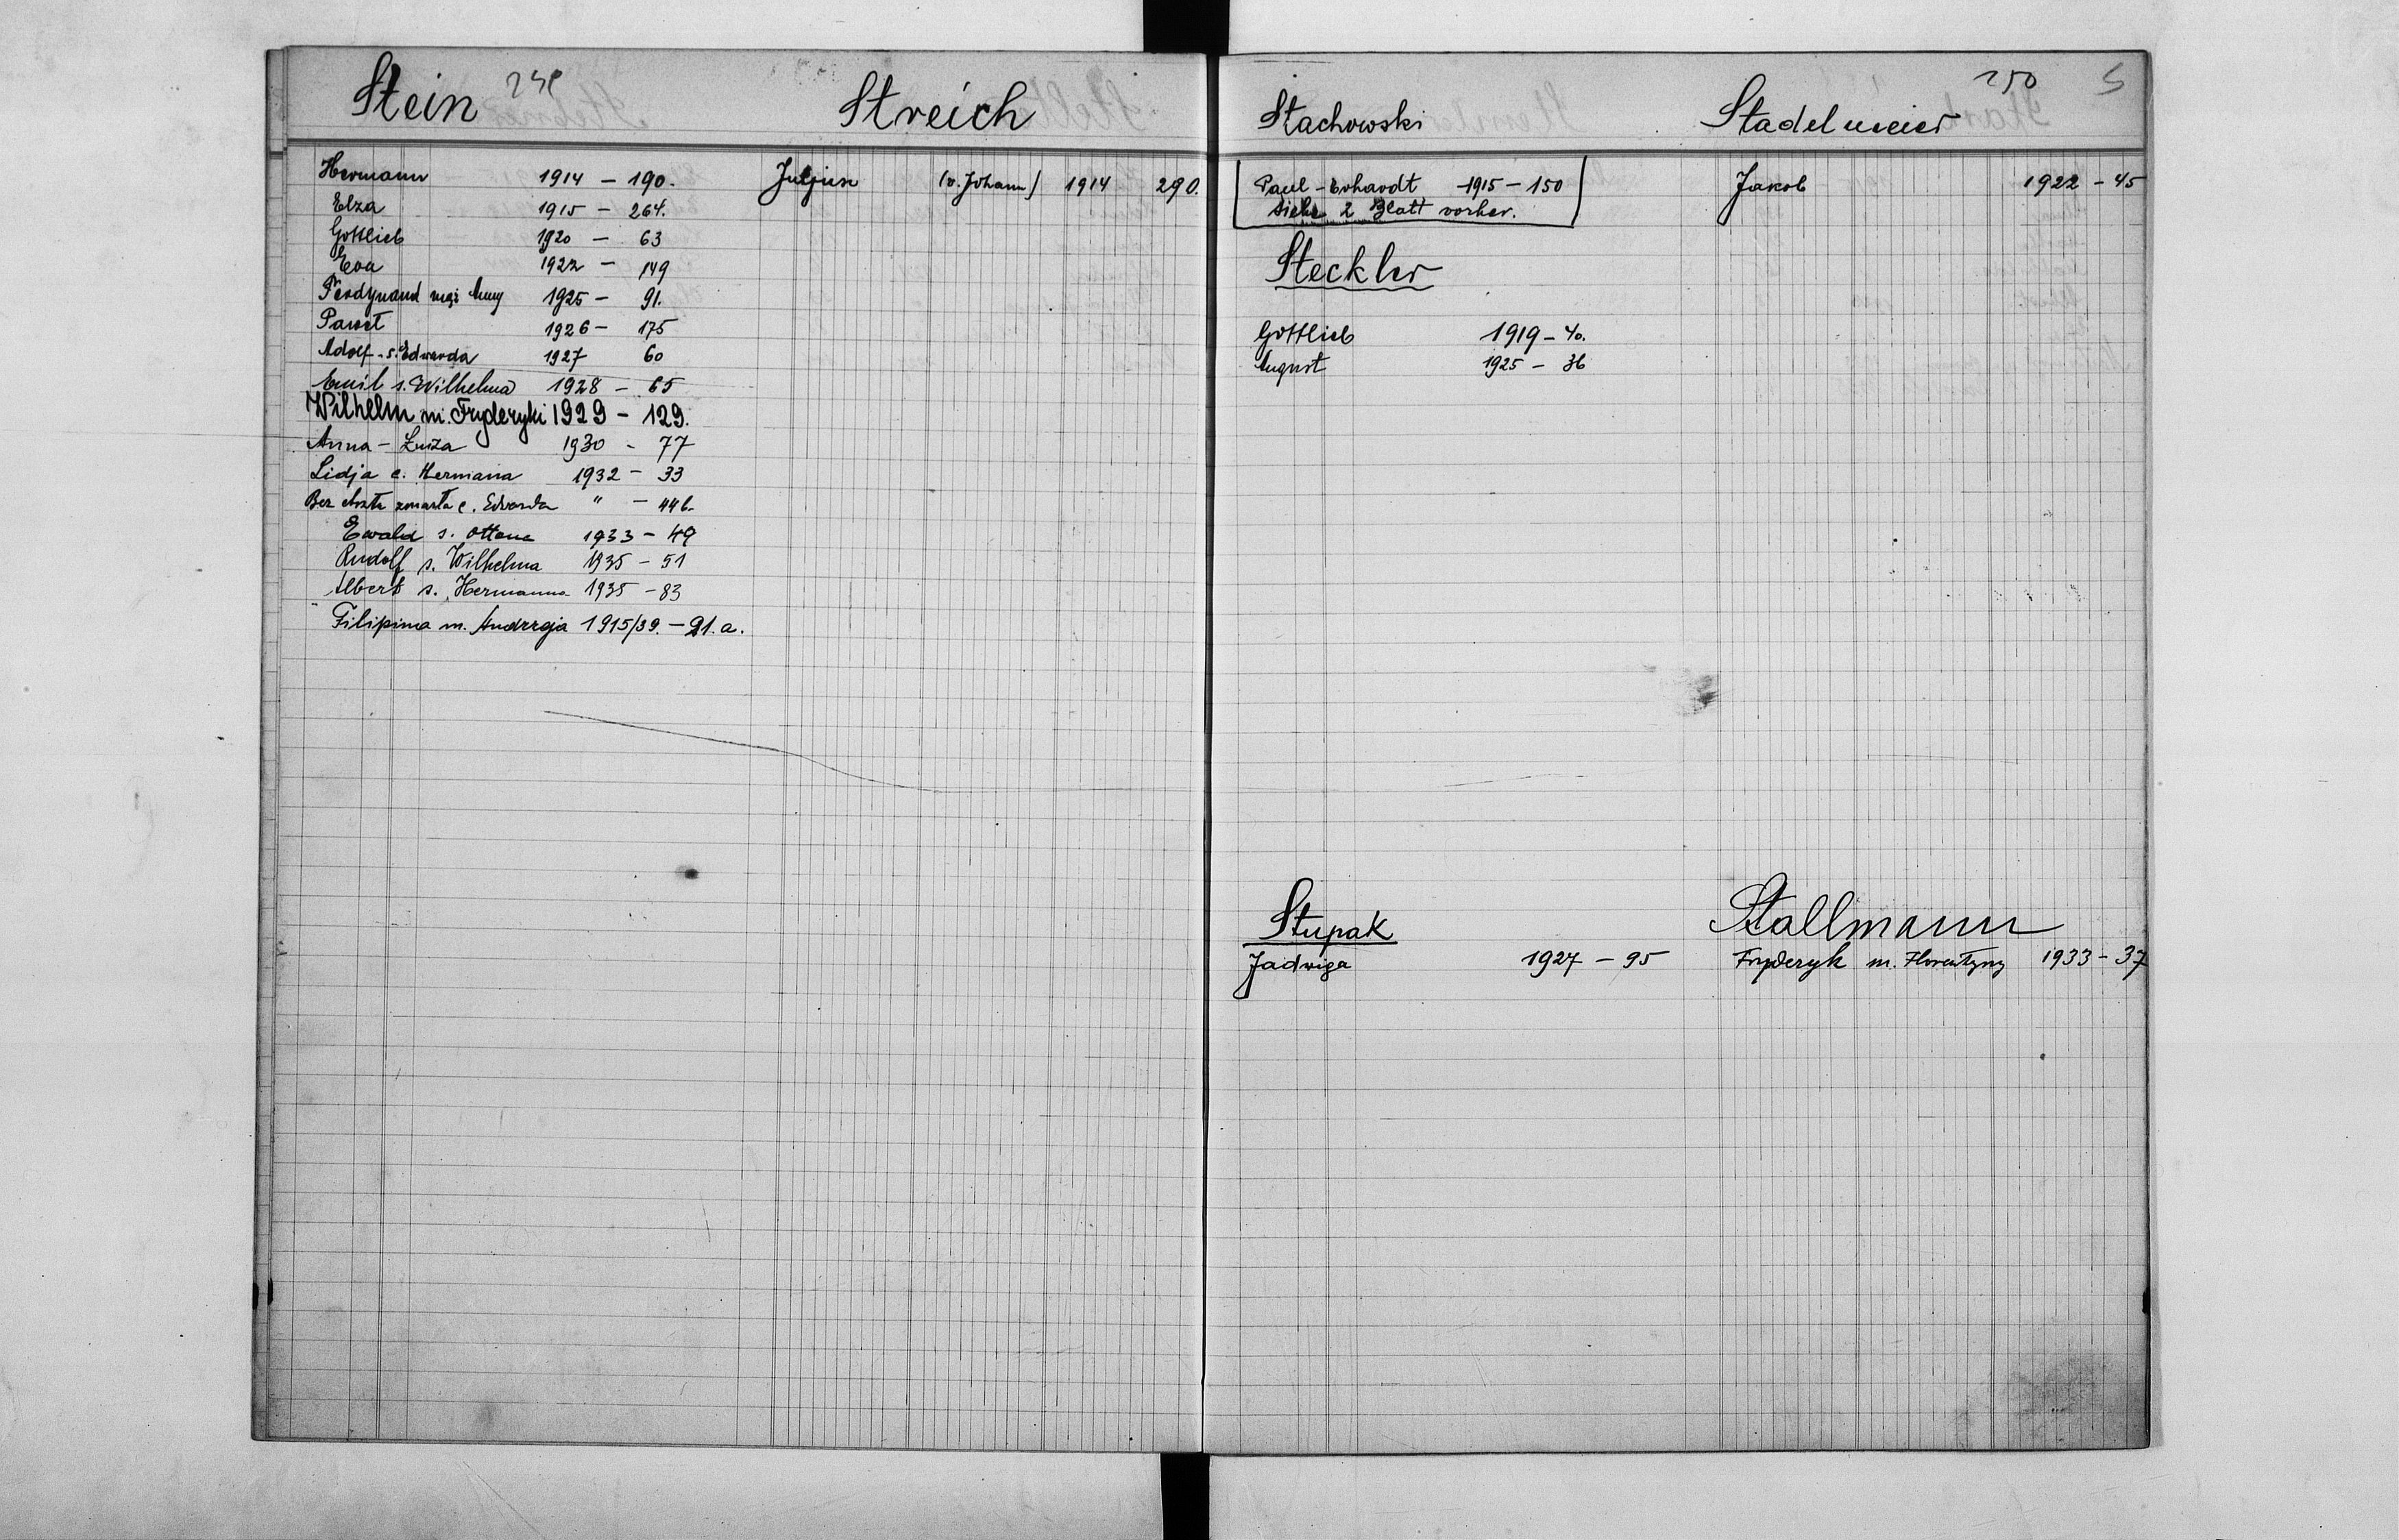 Stein
Hermann 1914 - 190.
Elza 1915 - 264.
Gottlieb 1920 - 63
Eva 1922 - 149
Ferdynand mąż Anny 1925 - 91.
Paweł 1926 - 175
Adolf - s. Edwarda 1927 60
Emil s. Wilhelma 1928 - 65
Wilhelm m. Fryderyki 1929 - 129.
Anna - Luiza 1930 - 77
Lidja c. Hermana 1932 - 33
Bez chrztu zmarła c. Edwarda " - 44b.
Ewald s. Ottona 1933 - 49
Rudolf s. Wilhelma 1935 - 51
Albert s. Hermanna 1935 - 83
Filipina m. Andrzeja 1915/39. - 21.a.
Streich
Juljus (v. Johann) 1914 290.
250 S
Stachowski
Paul - Erhardt - 1915 - 150
siehe 2 Blatt vorher.
Steckler
Gottlieb 1919 - 40.
August 1925 - 36
Stupak
Jadwiga 1927 - 95
Stadelmeier
Jakob 1922 - 45
Stallmann
Fryderyk m. Florentyny 1933 - 37